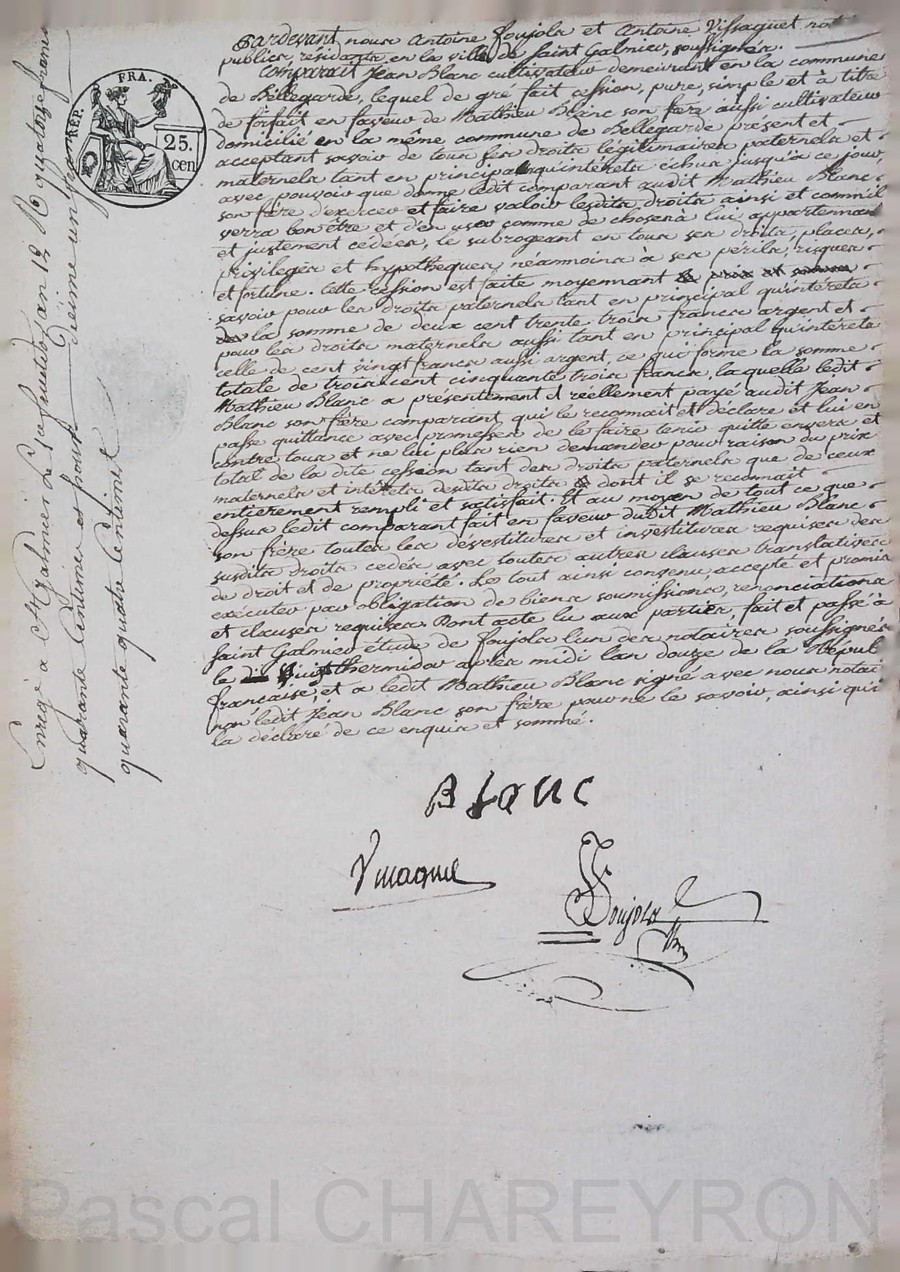 Pardevant nous Antoine Foujols et Antoine Vissaguet not
publics, résidants en la ville de Saint Galmier, soussignés.
Comparait Jean Blanc cultivateur demeurant en la commune
de Bellegarde, lequel de gré fait cession, pure, simple et à titre
de forfait en faveur de Mathieu Blanc son frère aussi cultivateur
domicilié en la même commune de Bellegarde présent et
acceptant savoir de tous ses droits légitimaires paternels et
maternels tant en principal qu'intérêts échus jusqu'à ce jour,
avec pouvoir que donne ledit comparant audit Mathieu Blanc
son frère d'exercer et faire valoir lesdits droits ainsi et comme il
verra bon être et d'en user comme de choses à lui appartenant
et justement cédées, le subrogeant en tous ses droits, places,
privilèges et hypothèques, néamnoins a ses périls, risques
et fortune. Cette cession est faite moyennant
savoir pour les droits paternels tant en principal qu'intérêts
la somme de deux cent trente trois francs argent et
pour les droits maternels aussi tant en principal qu'intérêts
celle de cent vingt francs aussi argent, ce qui forme la somme
totale de trois cent cinquante trois francs, la quelle ledit
Mathieu Blanc a présentement et réellement payé audit Jean
Blanc son frère comparant, qui le reconnait et déclare et lui en
passe quittance avec promesses de le faire tenir quitte envers et
contre tous et ne lui plus rien demander pour raison du prix
total de la dite cession tant des droits paternels que de ceux
maternels et intérêts desdits droits dont il se reconnait
entièrement rempli et satisfait. Et au moyen de tout ce que
dessus ledit comparant fait en faveur dudit Mathieu Blanc
son frère toutes les dévestitures et investitures requises des
susdits droits cédés avec toutes autres clauses translatives
de droit et de propriété. Le tout ainsi convenu, accepté et promis
exécuter par obligation de biens soumissions, renonciations
et clauses requises. Dont acte lu aux parties, fait et passé à
Saint Galmier étude de Foujols l'un des notaires soussignés
le huit thermidor après midi l'an douze de la Répub
française, et a ledit Mathieu Blanc signé avec nous notai
non ledit Jean Blanc son frère pour ne le savoir, ainsi qu'il
la déclaré de ce enquis et sommé.
Blanc
Vissaguet
Foujols
REP. FRA.
25. cen
Enreg. a St Galmier Le thermidor an 12 R quatre francs
quarante Centimes et pour Dixième
quarante quatre Centimes
Pascal CHAREYRON